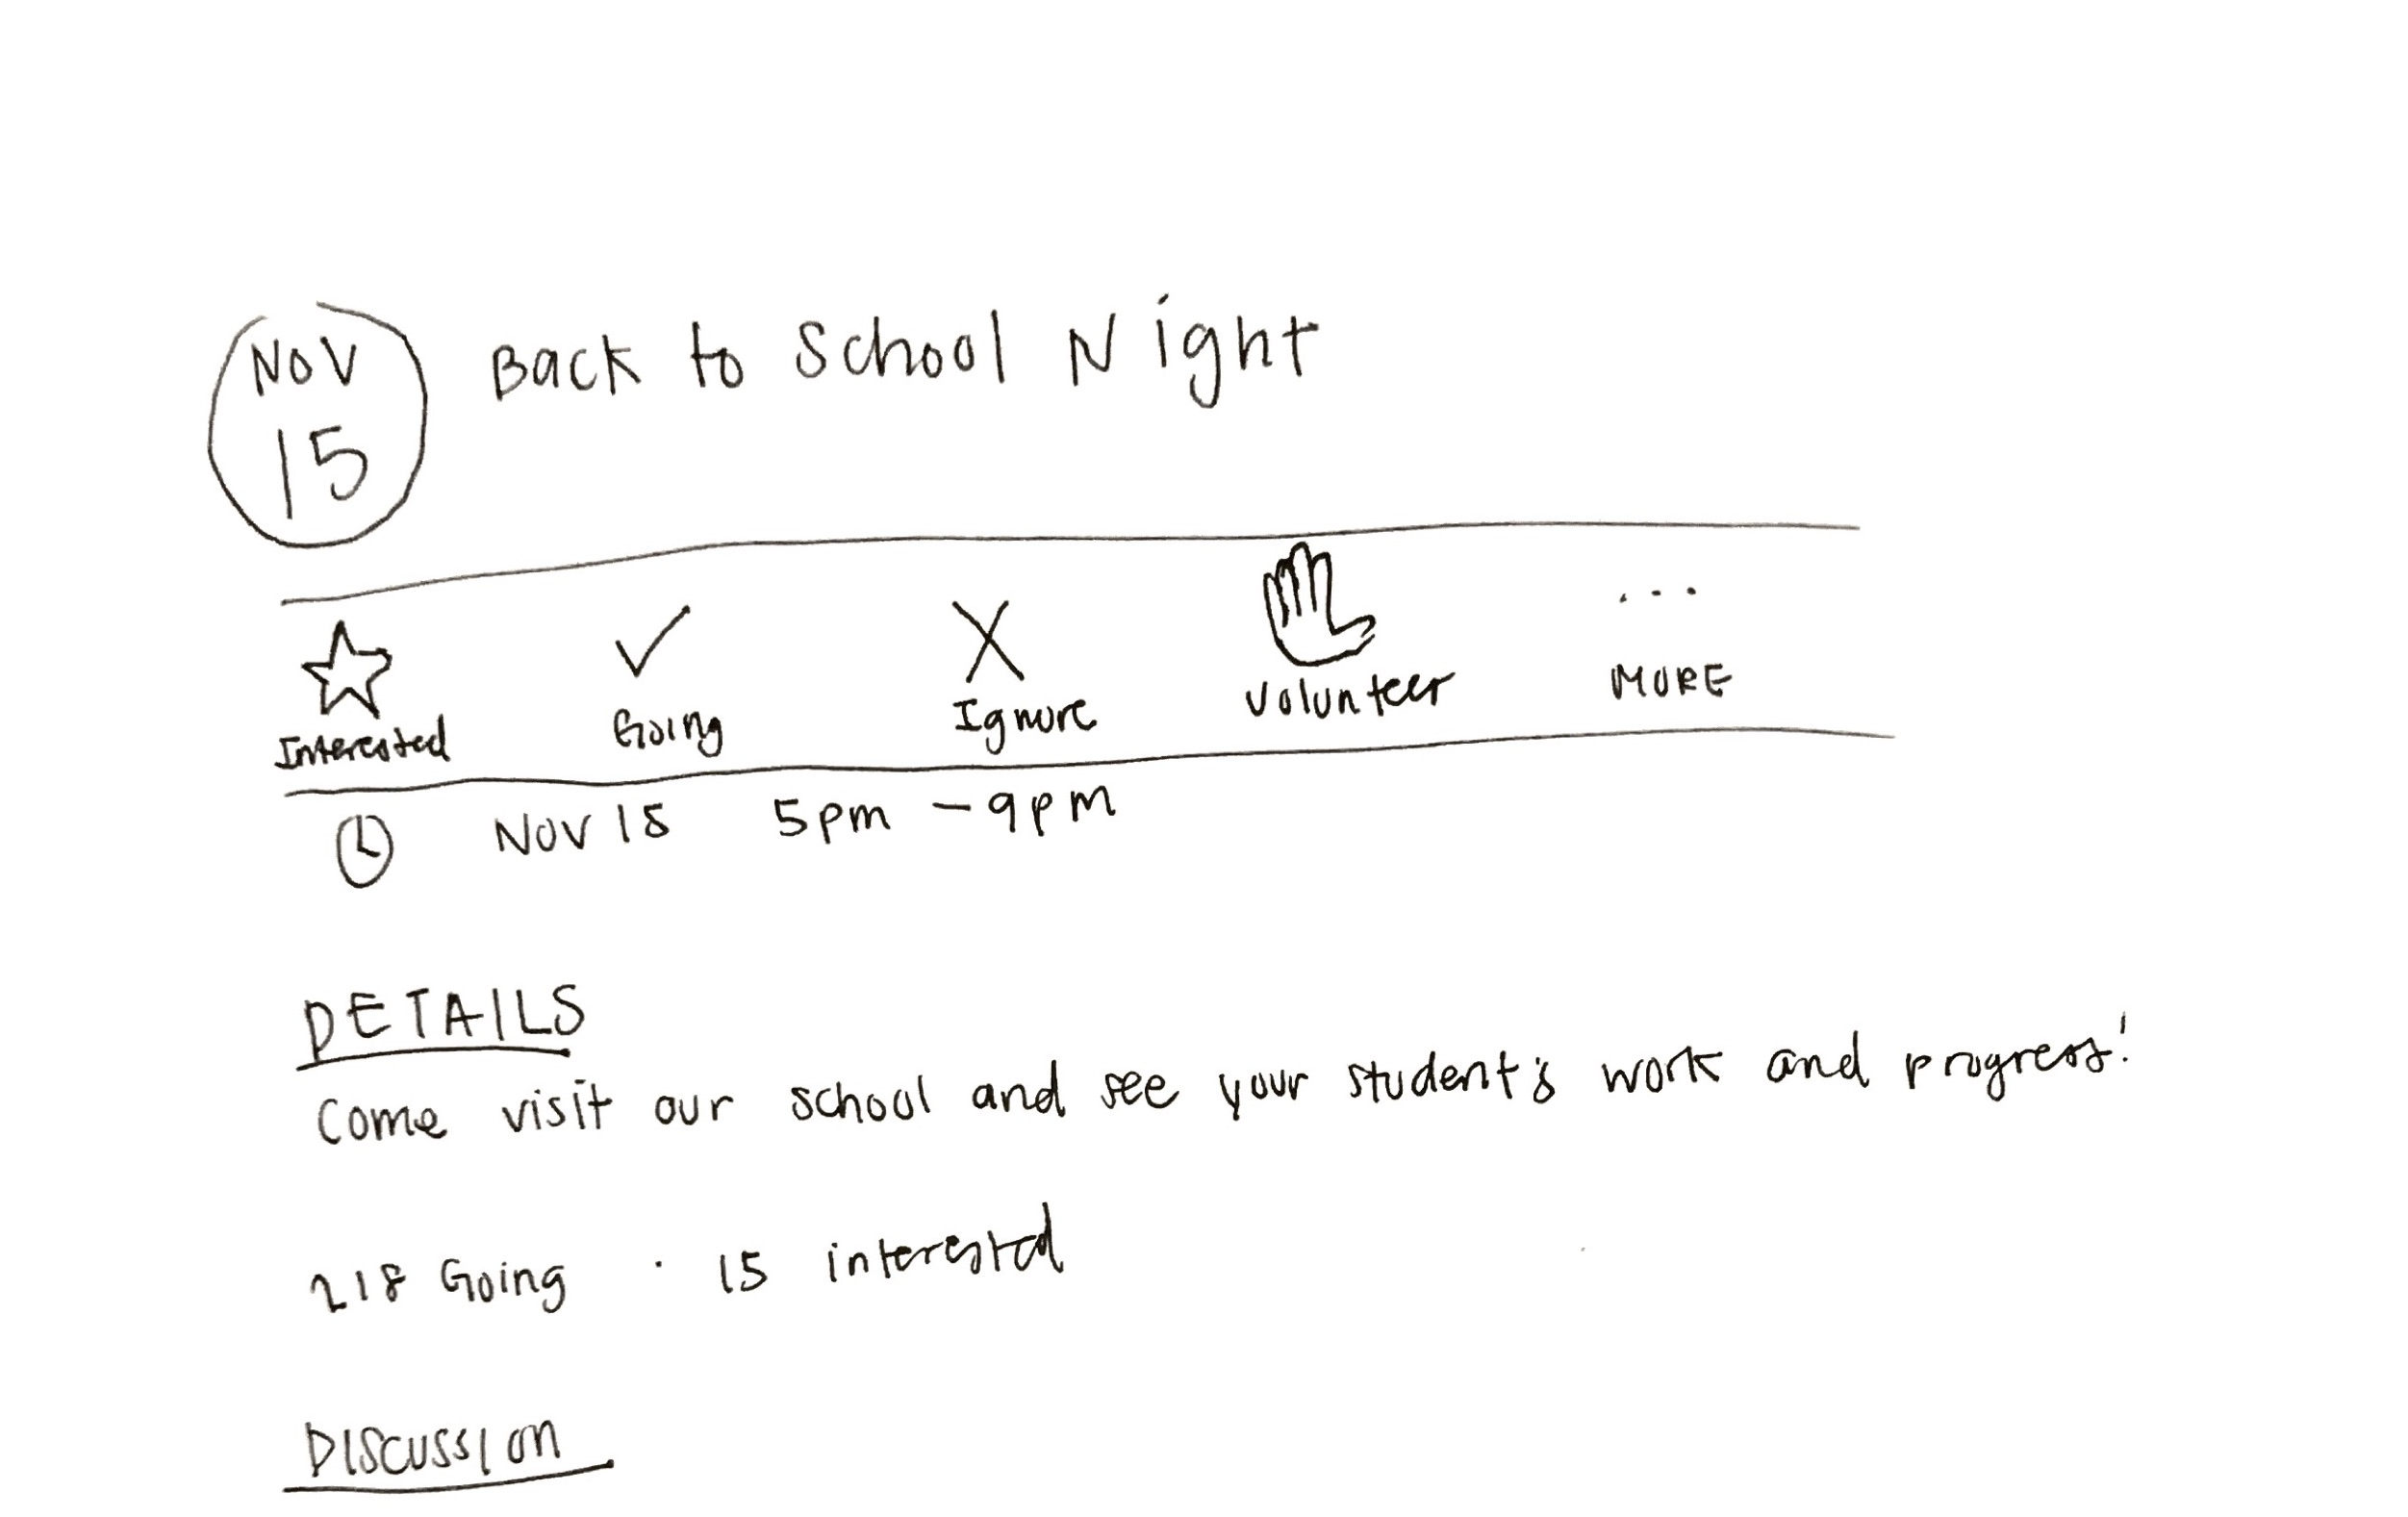 NOV
15
Back to School Night
Interested
Going
Ignore
Volunteer
...
MORE
NOV 15 5pm - 9pm
DETAILS
Come visit our school and see your student's work and progress!
218 Going · 15 interested
DISCUSSION